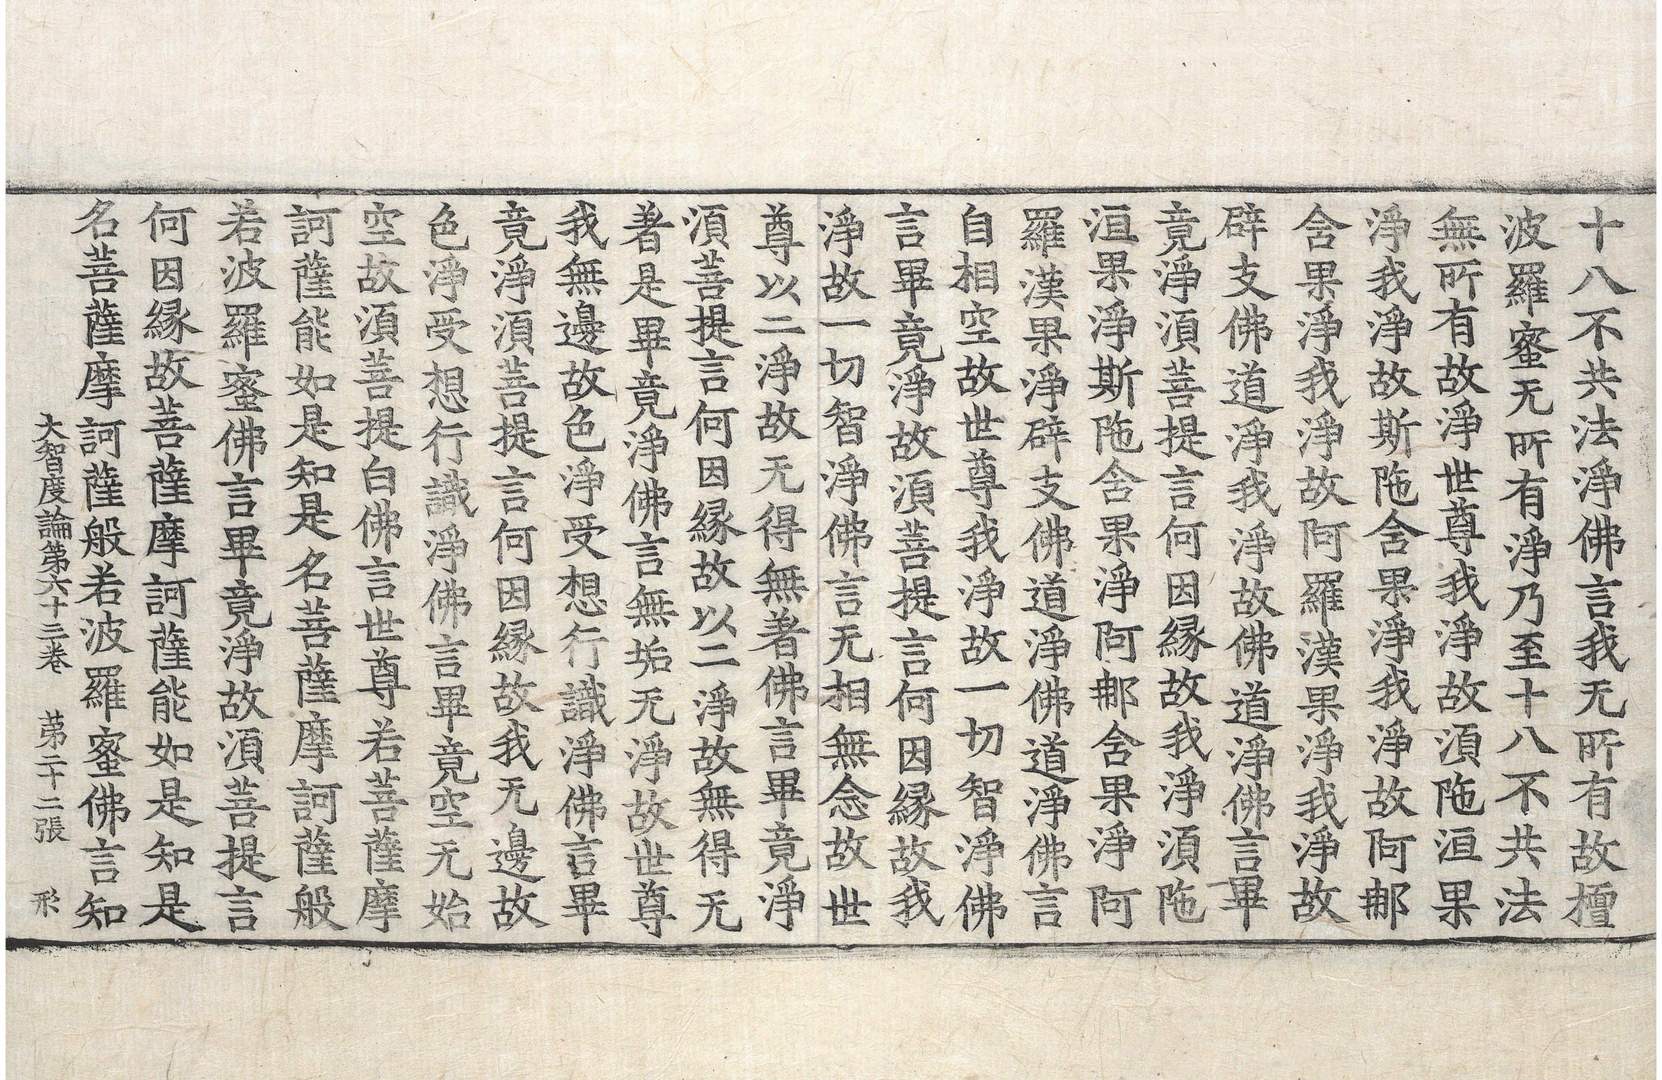 十八不共法淨佛言我无所有故檀
波羅蜜无所有淨乃至十八不共法
無所有故淨世尊我淨故湏陁洹果
淨我淨故斯陁舍果淨我淨故阿𨚗
舍果淨我淨故阿羅漢果淨我淨故
辟支佛道淨我淨故佛道淨佛言畢
竟淨湏菩提言何因緣故我淨湏陁
洹果淨斯陁舍果淨阿𨚗舍果淨阿
羅漢果淨辟支佛道淨佛道淨佛言
自相空故世尊我淨故一切智淨佛
言畢竟淨故湏菩提言何因緣故我
淨故一切智淨佛言无相無念故世
尊以二淨故无得無著佛言畢竟淨
湏菩提言何因緣故以二淨故無得无
著是畢竟淨佛言無垢无淨故世尊
我無邊故色淨受想行識淨佛言畢
竟淨湏菩提言何因緣故我无邊故
色淨受想行識淨佛言畢竟空无始
空故湏菩提白佛言世尊若菩薩摩
訶薩能如是知是名菩薩摩訶薩般
若波羅蜜佛言畢竟淨故湏菩提言
何因緣故菩薩摩訶薩能如是知是
名菩薩摩訶薩般若波羅蜜佛言知
大智度論第六十三卷 苐二十二張 形